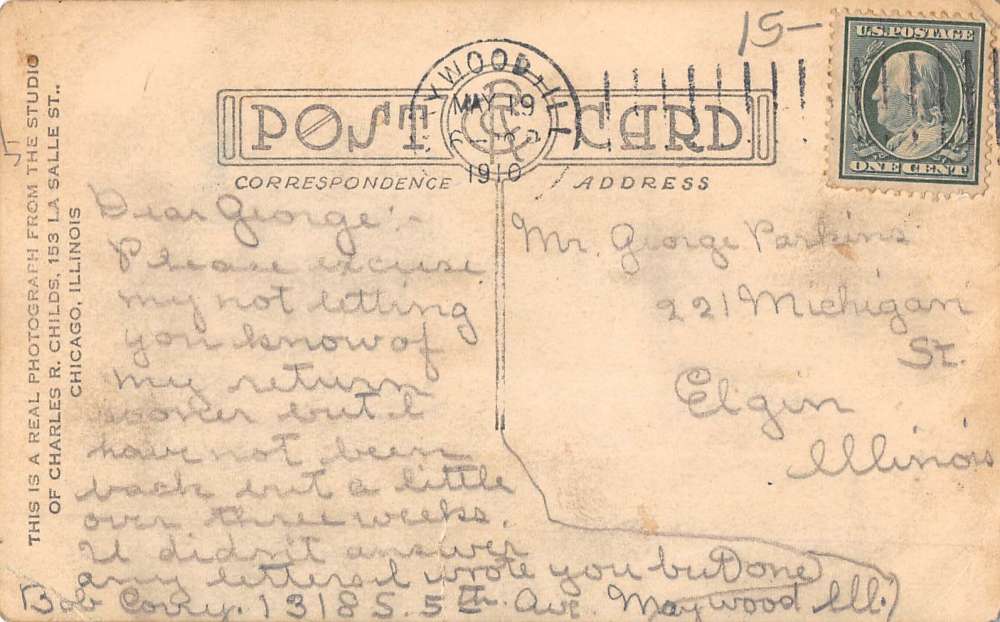 15-
U.S. POSTAGE
ONE CENT
MAYWOOD, ILL
MAY 19
1910
POST CARD
CORRESPONDENCE
ADDRESS
THIS IS A REAL PHOTOGRAPH FROM THE STUDIO
OF CHARLES R. CHILDS, 153 LA SALLE ST.,
CHICAGO, ILLINOIS
Dear George:-
Please excuse
my not letting
you know of
my return
sooner but I
have not been
back but a little
over three weeks.
U didn't answer
any letters I wrote you but Done
Bob 1318 S. 5th Ave. Maywood Ill.
Mr. George Parkins
221 Michigan
St.
Elgin
Illinois